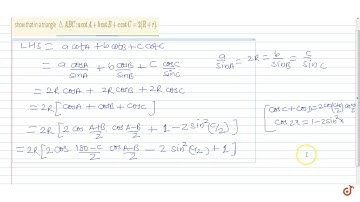 show that in a triangle △ABC: a cot A + b cot B + c cot C = 2(R + r).
LHS = a cotA + b cotB + c cotC
= a cosA/sinA + b cosB/sinB + c cosC/sinC
a/sinA = 2R = b/sinB = c/sinC
= 2R cosA + 2R cosB + 2R cosC
= 2R [cosA + cosB + cosC]
= 2R [2 cos A+B/2 cos A-B/2 + 1 - 2 sin²(C/2)]
= 2R [2 cos 180-C/2 cos A-B/2 - 2 sin²(C/2) + 1]
[cosC + cosD = 2cos(C+D)/2 cos
cos2x = 1-2sin²x